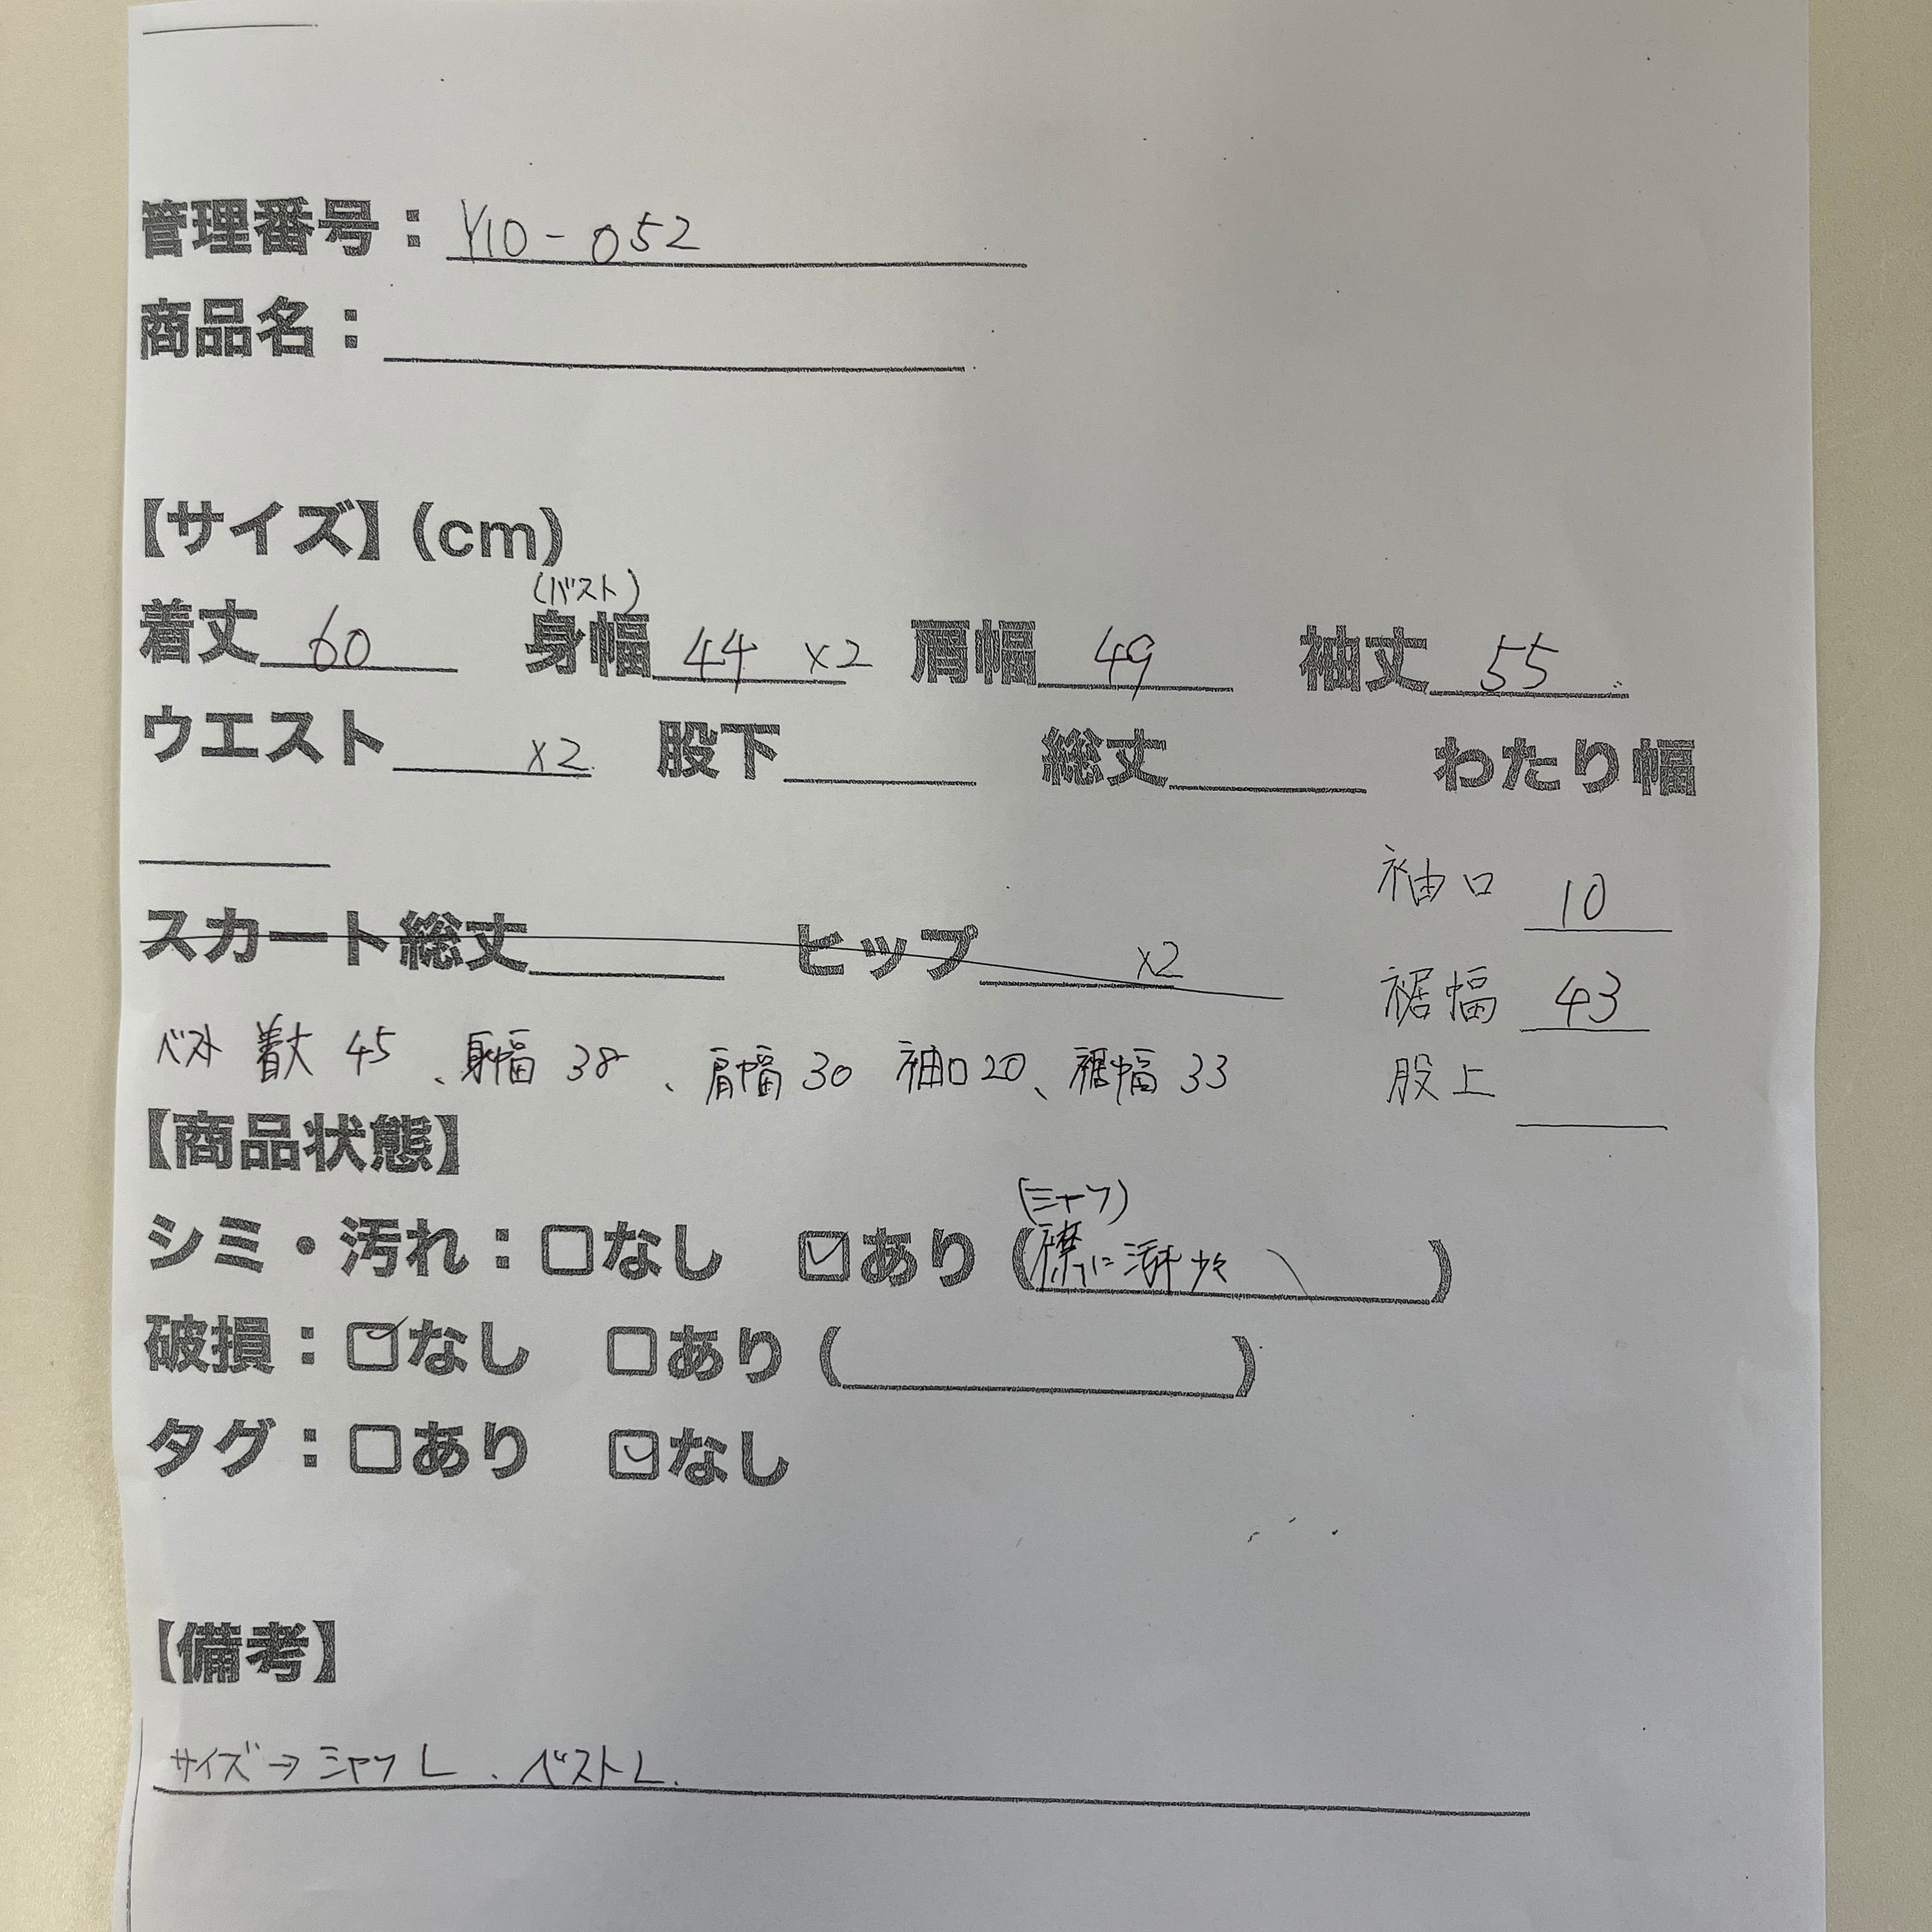 管理番号：Y10-052
商品名：
【サイズ】(cm)
(バスト)
着丈 60 身幅 44 ×2 肩幅 49 袖丈 55
ウエスト ×2 股下 総丈 わたり幅
袖口 10
スカート総丈 ヒップ ×2
裾幅 43
ベスト 着丈 45、身幅 38、肩幅 30 袖口20、裾幅 33
股上
【商品状態】
(シャツ)
シミ・汚れ：□なし ☑あり (襟に汚れ少々)
破損：☑なし □あり ( )
タグ：□あり ☑なし
【備考】
サイズ→シャツL、ベストL.